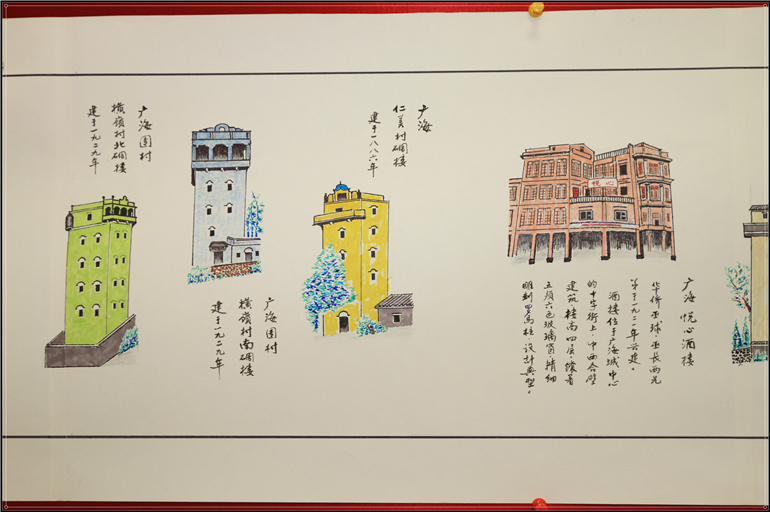 悦心
广海 悦心酒楼
华侨巫球、巫長两兄
弟于一九二一年兴建。
酒楼位于广海城中心
的十字街上,中西合璧
建筑,楼高四层,
五颜六色玻璃窗,精细
雕刻罗马柱,设计典型。
广海
仁美村碉楼
建于一八八六年
广海圍村
横嶺村南碉楼
建于一九二九年
广海圍村
横嶺村北碉楼
建于一九二九年